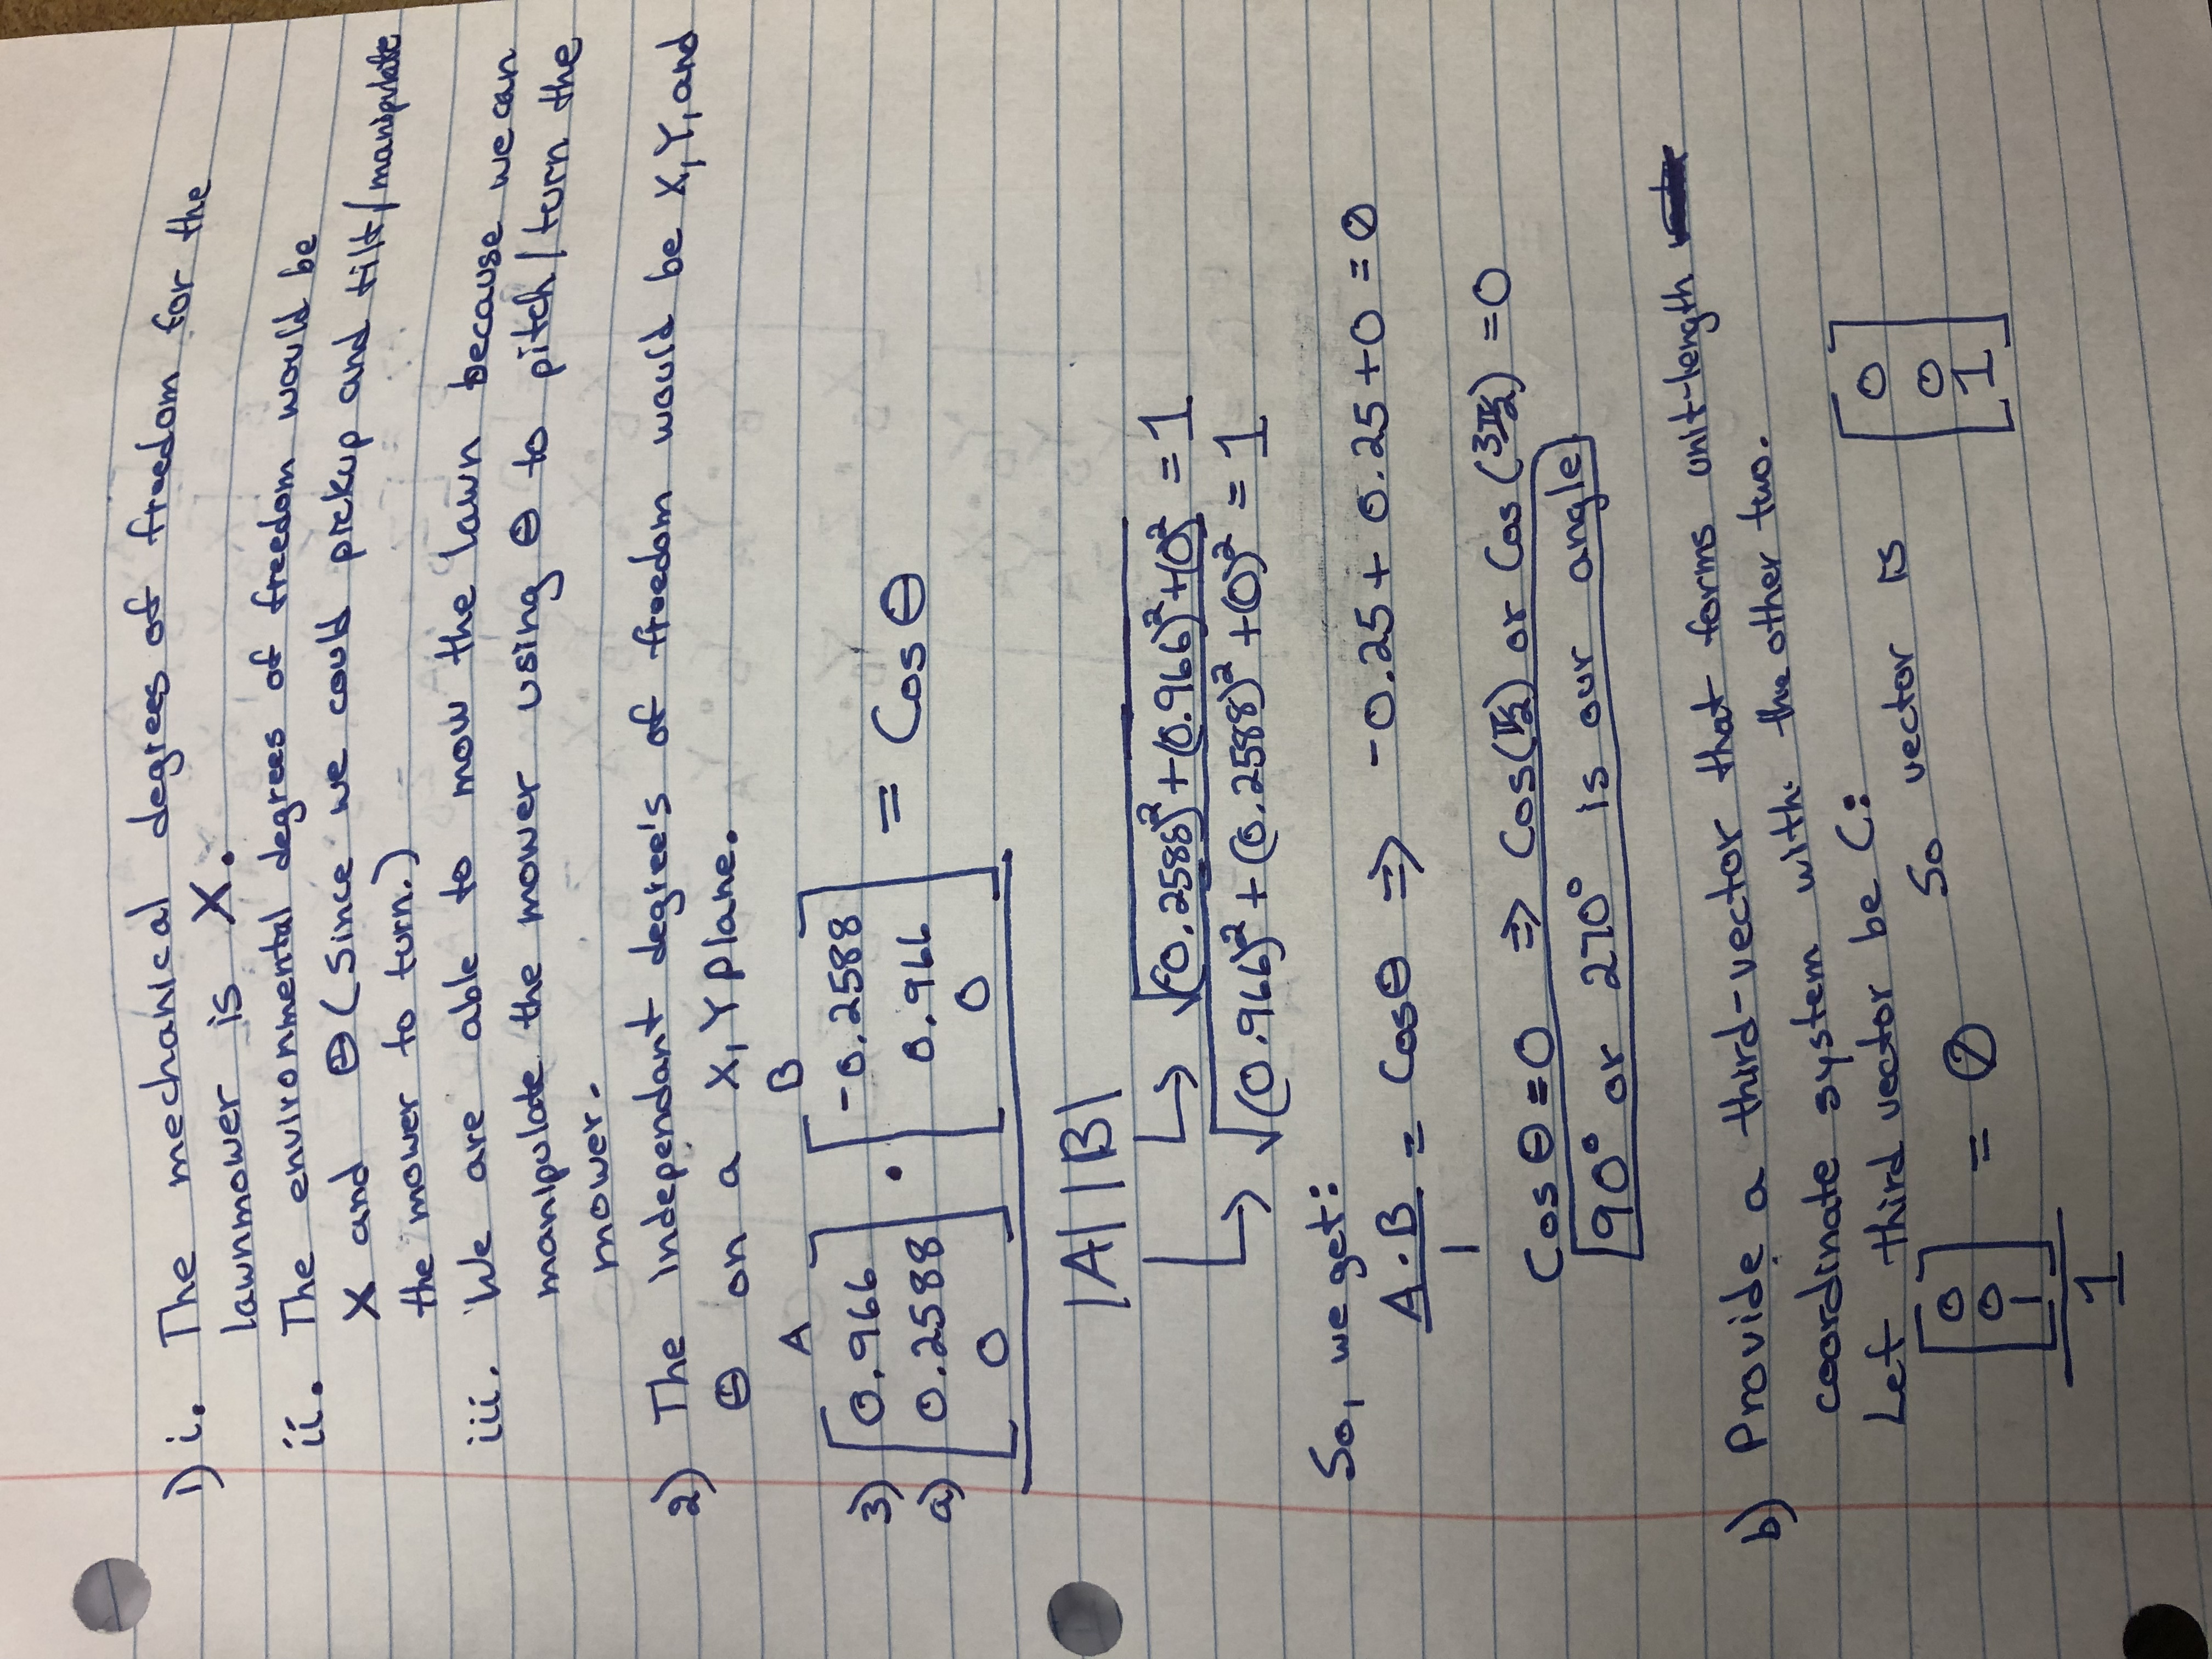 1) i. The mechanical degrees of freedom for the
lawnmower is X.
ii. The environmental degrees of freedom would be
X and Θ (Since we could pickup and tilt/manipulate
the mower to turn.)
iii. We are able to mow the lawn because we can
manipulate the mower using Θ to pitch/turn the
mower.
2) The independant degree's of freedom would be X, Y, and
Θ on a X, Y plane.
A B
3) [0.966 -0.2588
a) 0.2588 · 0.966 = Cos Θ
0] 0]
|A| |B|
↳ √(-0.2588)² + (0.966)² + (0)² = 1
↳ √(0.966)² + (0.2588)² + (0)² = 1
So, we get:
A · B / 1 = Cos Θ ⇒ -0.25 + 0.25 + 0 = 0
Cos Θ = 0 ⇒ Cos(π/2) or Cos(3π/2) = 0
90° or 270° is our angle
b) Provide a third-vector that forms unit-length
coordinate system with the other two.
Let third vector be C:
[0 0 1] / 1 = 0 So vector is [0 0 1]